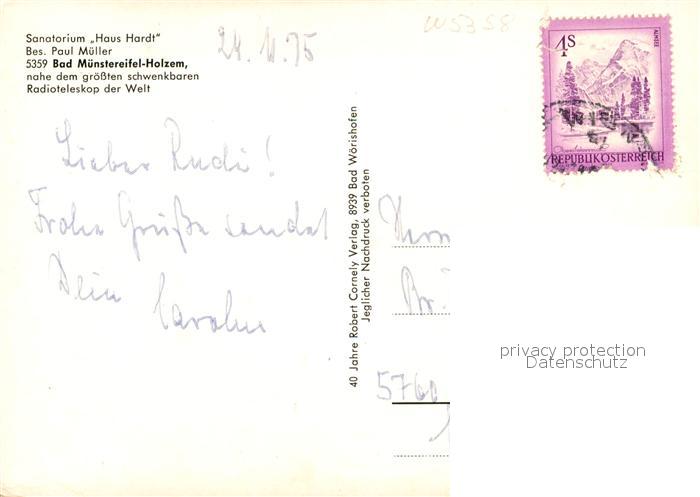 Sanatorium „Haus Hardt"
Bes. Paul Müller
5359 Bad Münstereifel-Holzem,
nahe dem größten schwenkbaren
Radioteleskop der Welt
W5358
Lieber Rudi!
Frohe Grüße sendet
Dein
40 Jahre Robert Cornely Verlag, 8939 Bad Wörishofen
Jeglicher Nachdruck verboten
1S
ALMSEE
REPUBLIK ÖSTERREICH
Herrn
5760
privacy protection
Datenschutz